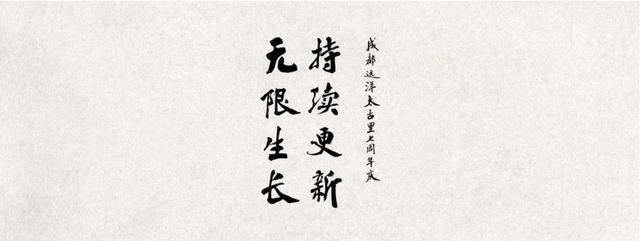 成都远洋太古里七周年庆
持续更新
无限生长